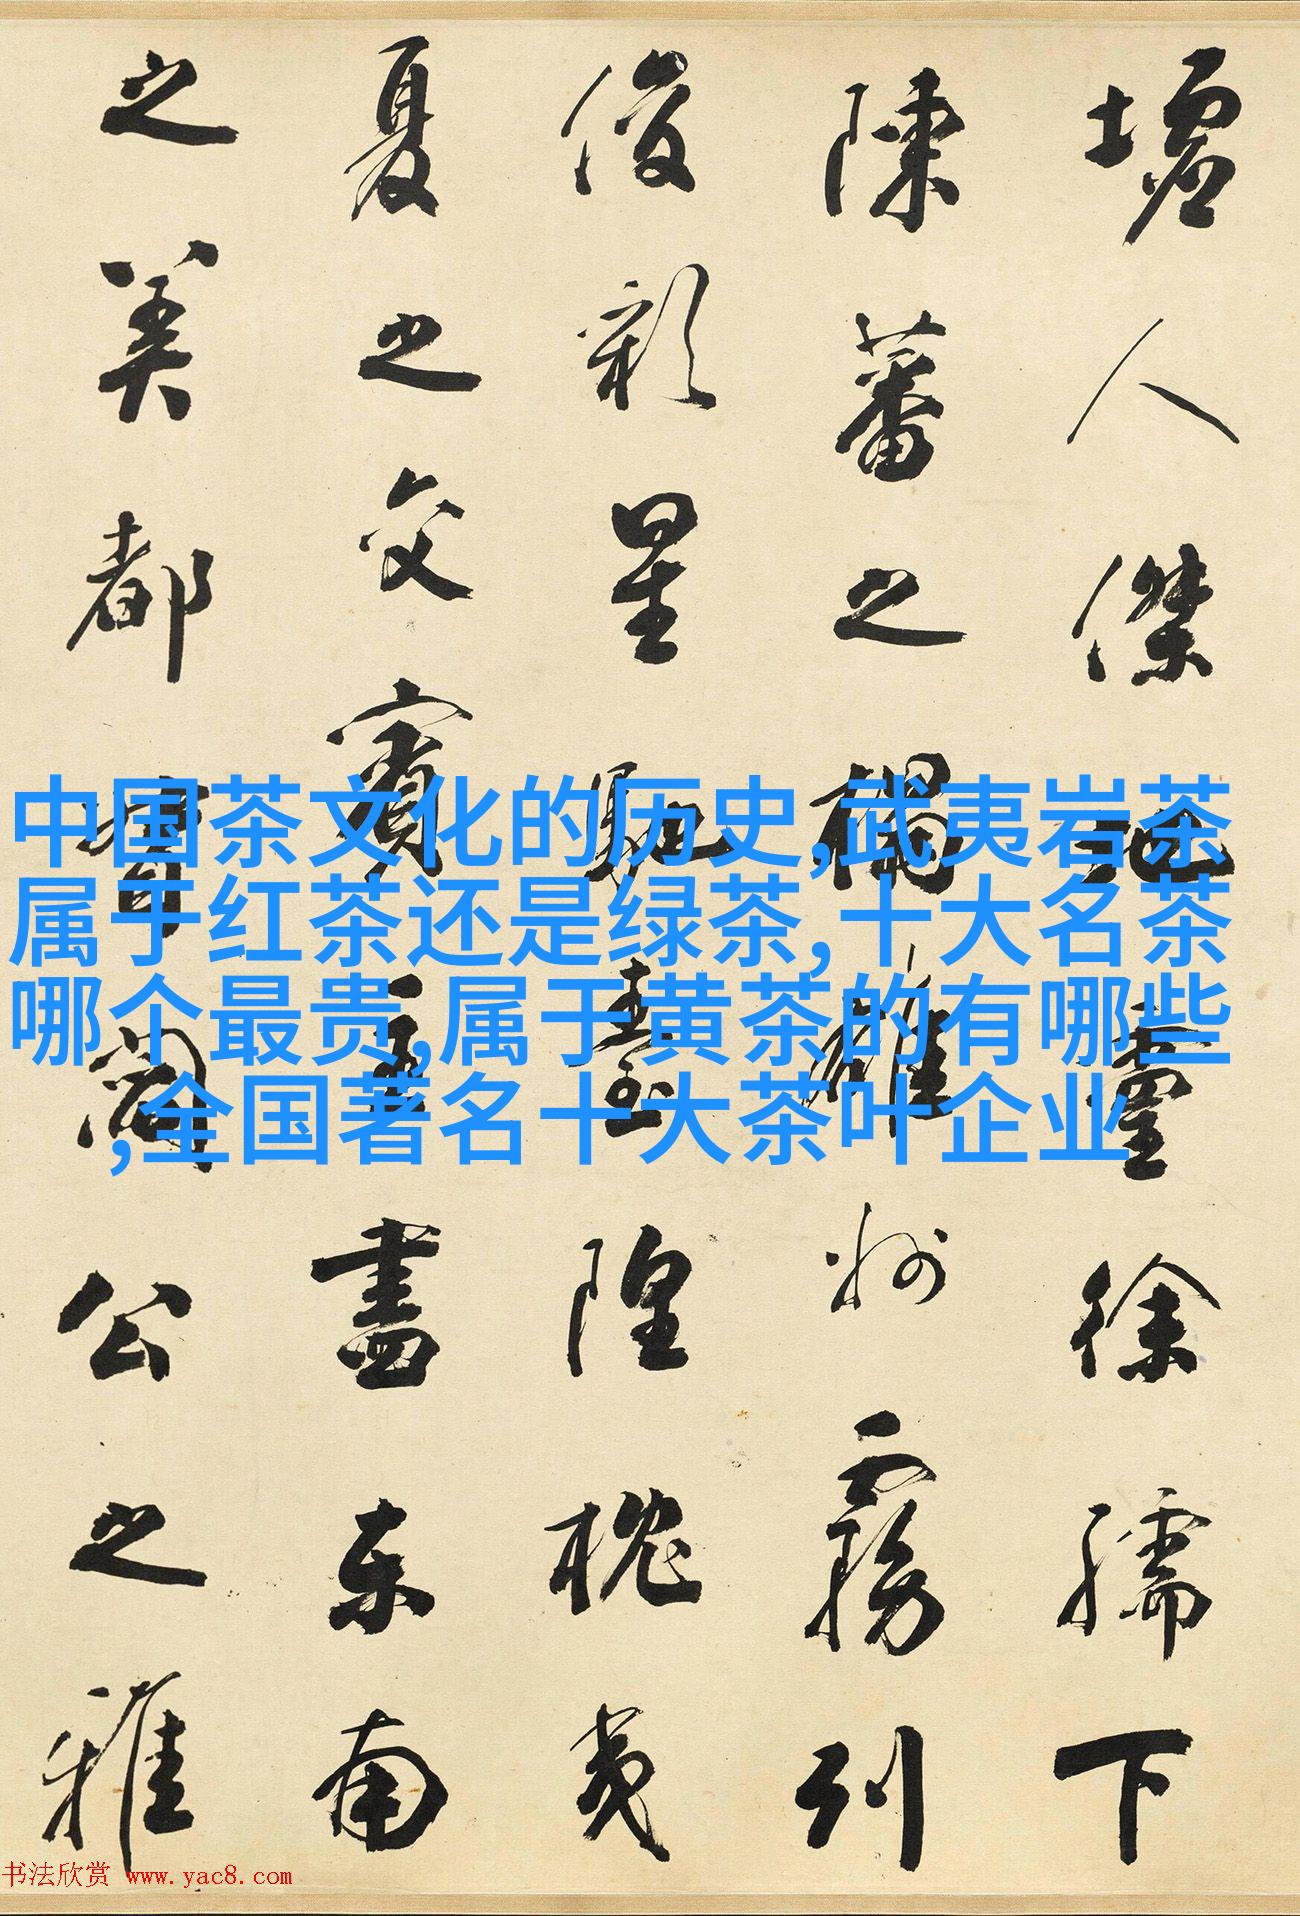 墟人傑地靈徐孺下
陳蕃之榻雄州霧列
俊彩星馳臺隍枕夷
夏之交賓主盡東南
之美都督閻公之雅
中国茶文化的历史,武夷岩茶
属于红茶还是绿茶,十大名茶
哪个最贵,属于黄茶的有哪些
,全国著名十大茶叶企业
书法欣赏 www.yac8.com